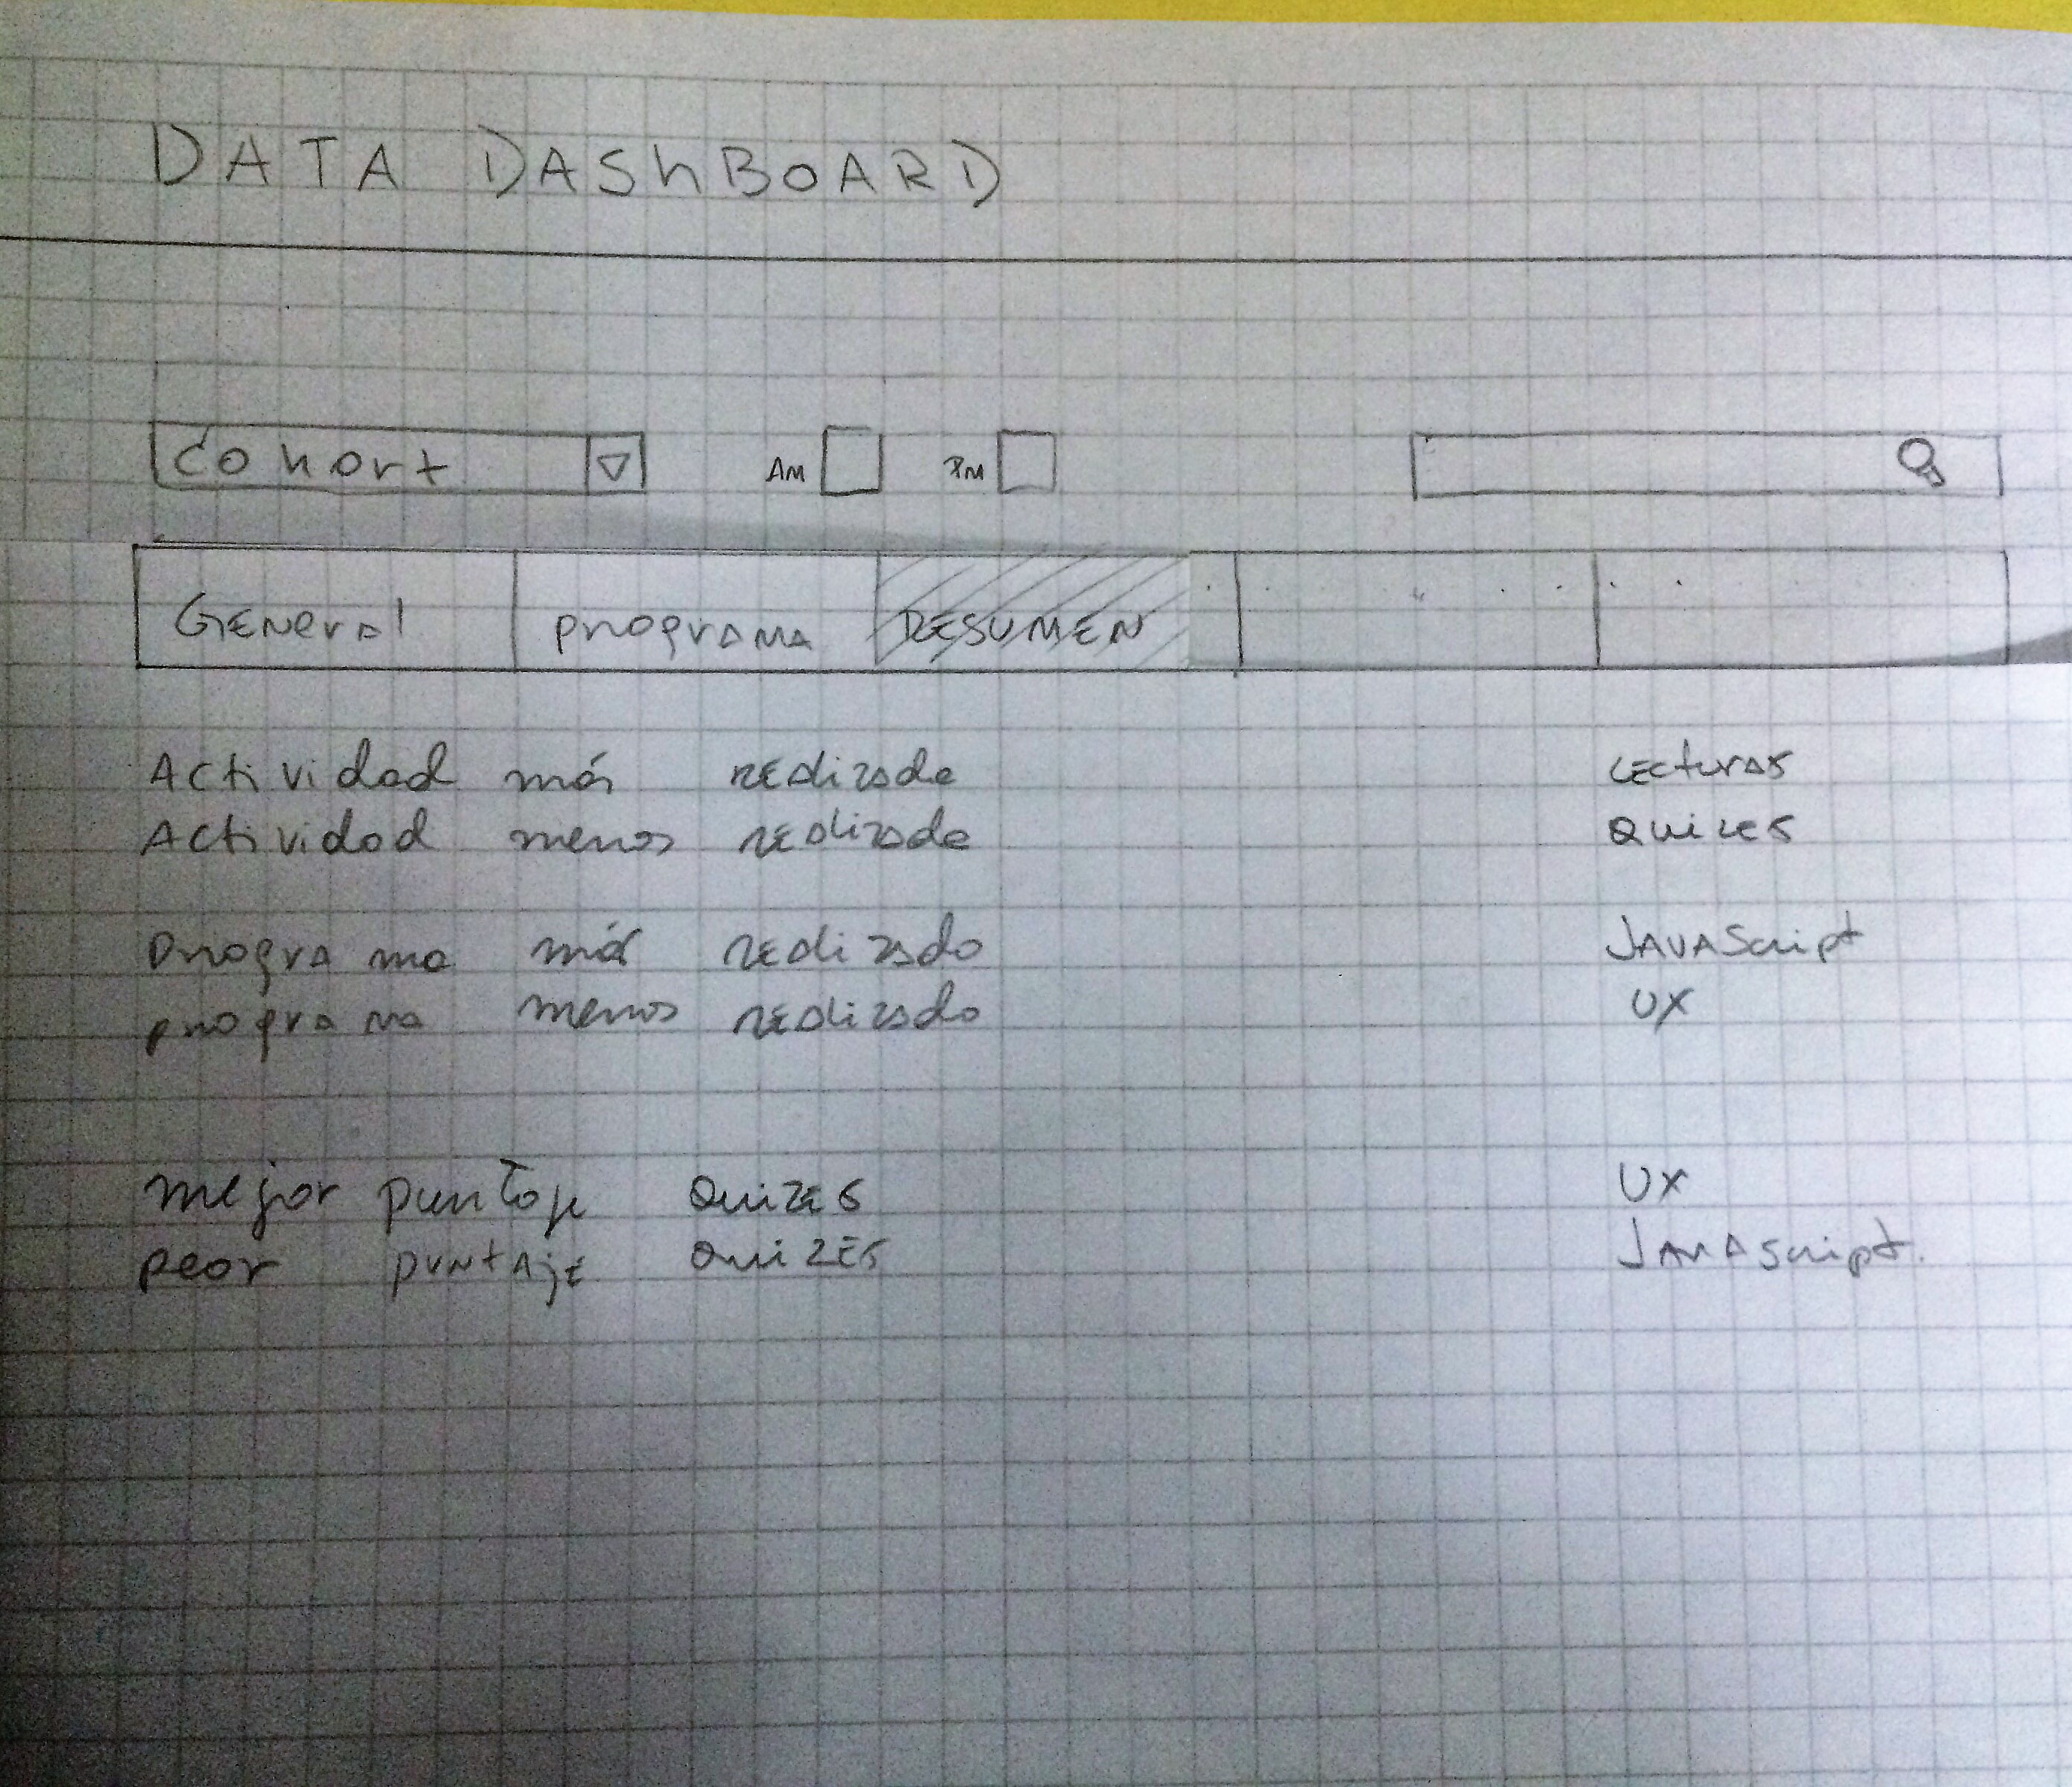 DATA DASHBOARD
Cohort AM PM
General programa RESUMEN
Actividad más realizada Lecturas
Actividad menos realizada Quizes
programa más realizado JAVAScript
programa menos realizado UX
mejor puntaje Quizes UX
peor puntaje QuizES JAVAScript.